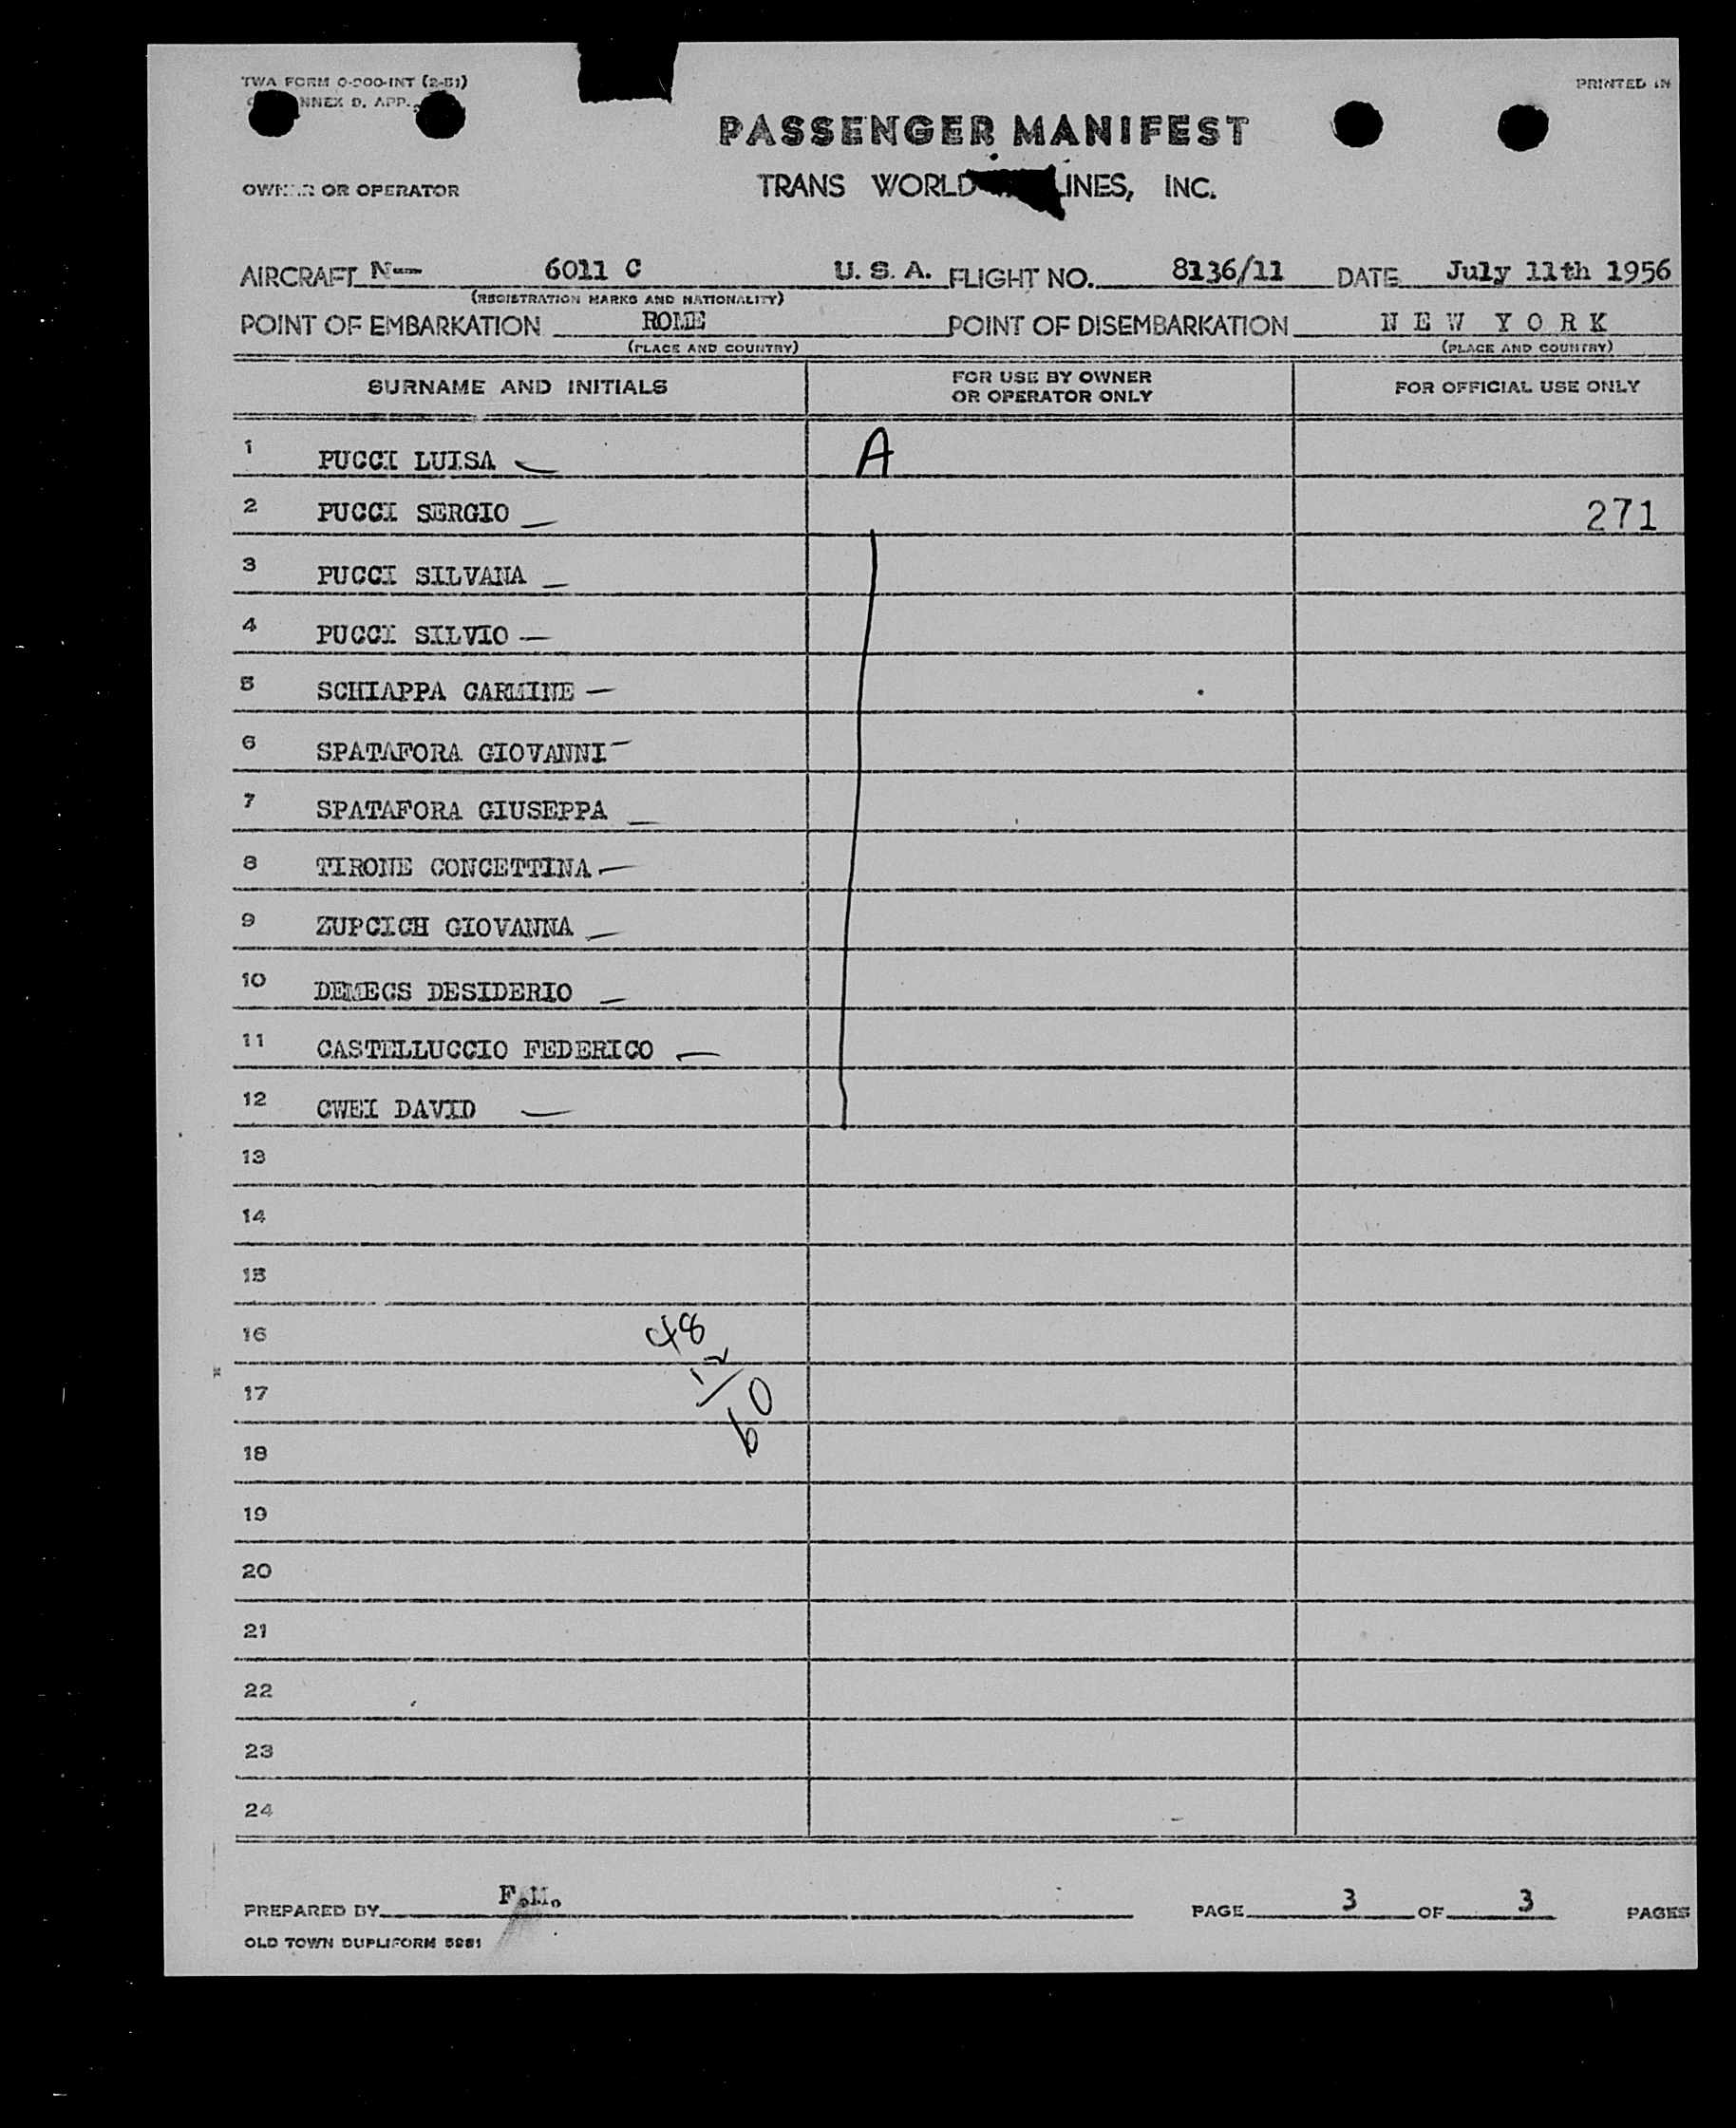 TWA FORM O-200-INT (2-51)
NNEX 9, APP.
PRINTED IN
PASSENGER MANIFEST
OR OPERATOR
TRANS WORLD LINES, INC.
AIRCRAFT N— 6011 C U. S. A. FLIGHT NO. 8136/11 DATE July 11th 1956
(REGISTRATION MARKS AND NATIONALITY)
POINT OF EMBARKATION ROME POINT OF DISEMBARKATION N E W Y O R K
(PLACE AND COUNTRY) (PLACE AND COUNTRY)
SURNAME AND INITIALS
FOR USE BY OWNER
OR OPERATOR ONLY
FOR OFFICIAL USE ONLY
1 PUCCI LUISA A
2 PUCCI SERGIO 271
3 PUCCI SILVANA
4 PUCCI SILVIO
5 SCHIAPPA CARMINE
6 SPATAFORA GIOVANNI
7 SPATAFORA GIUSEPPA
8 TIRONE CONCETTINA
9 ZUPCICH GIOVANNA
10 DEMECS DESIDERIO
11 CASTELLUCCIO FEDERICO
12 CWEI DAVID
13
14
15
16 48
12
17 60
18
19
20
21
22
23
24
PREPARED BY F.M. PAGE 3 OF 3 PAGES
OLD TOWN DUPLIFORM 5981